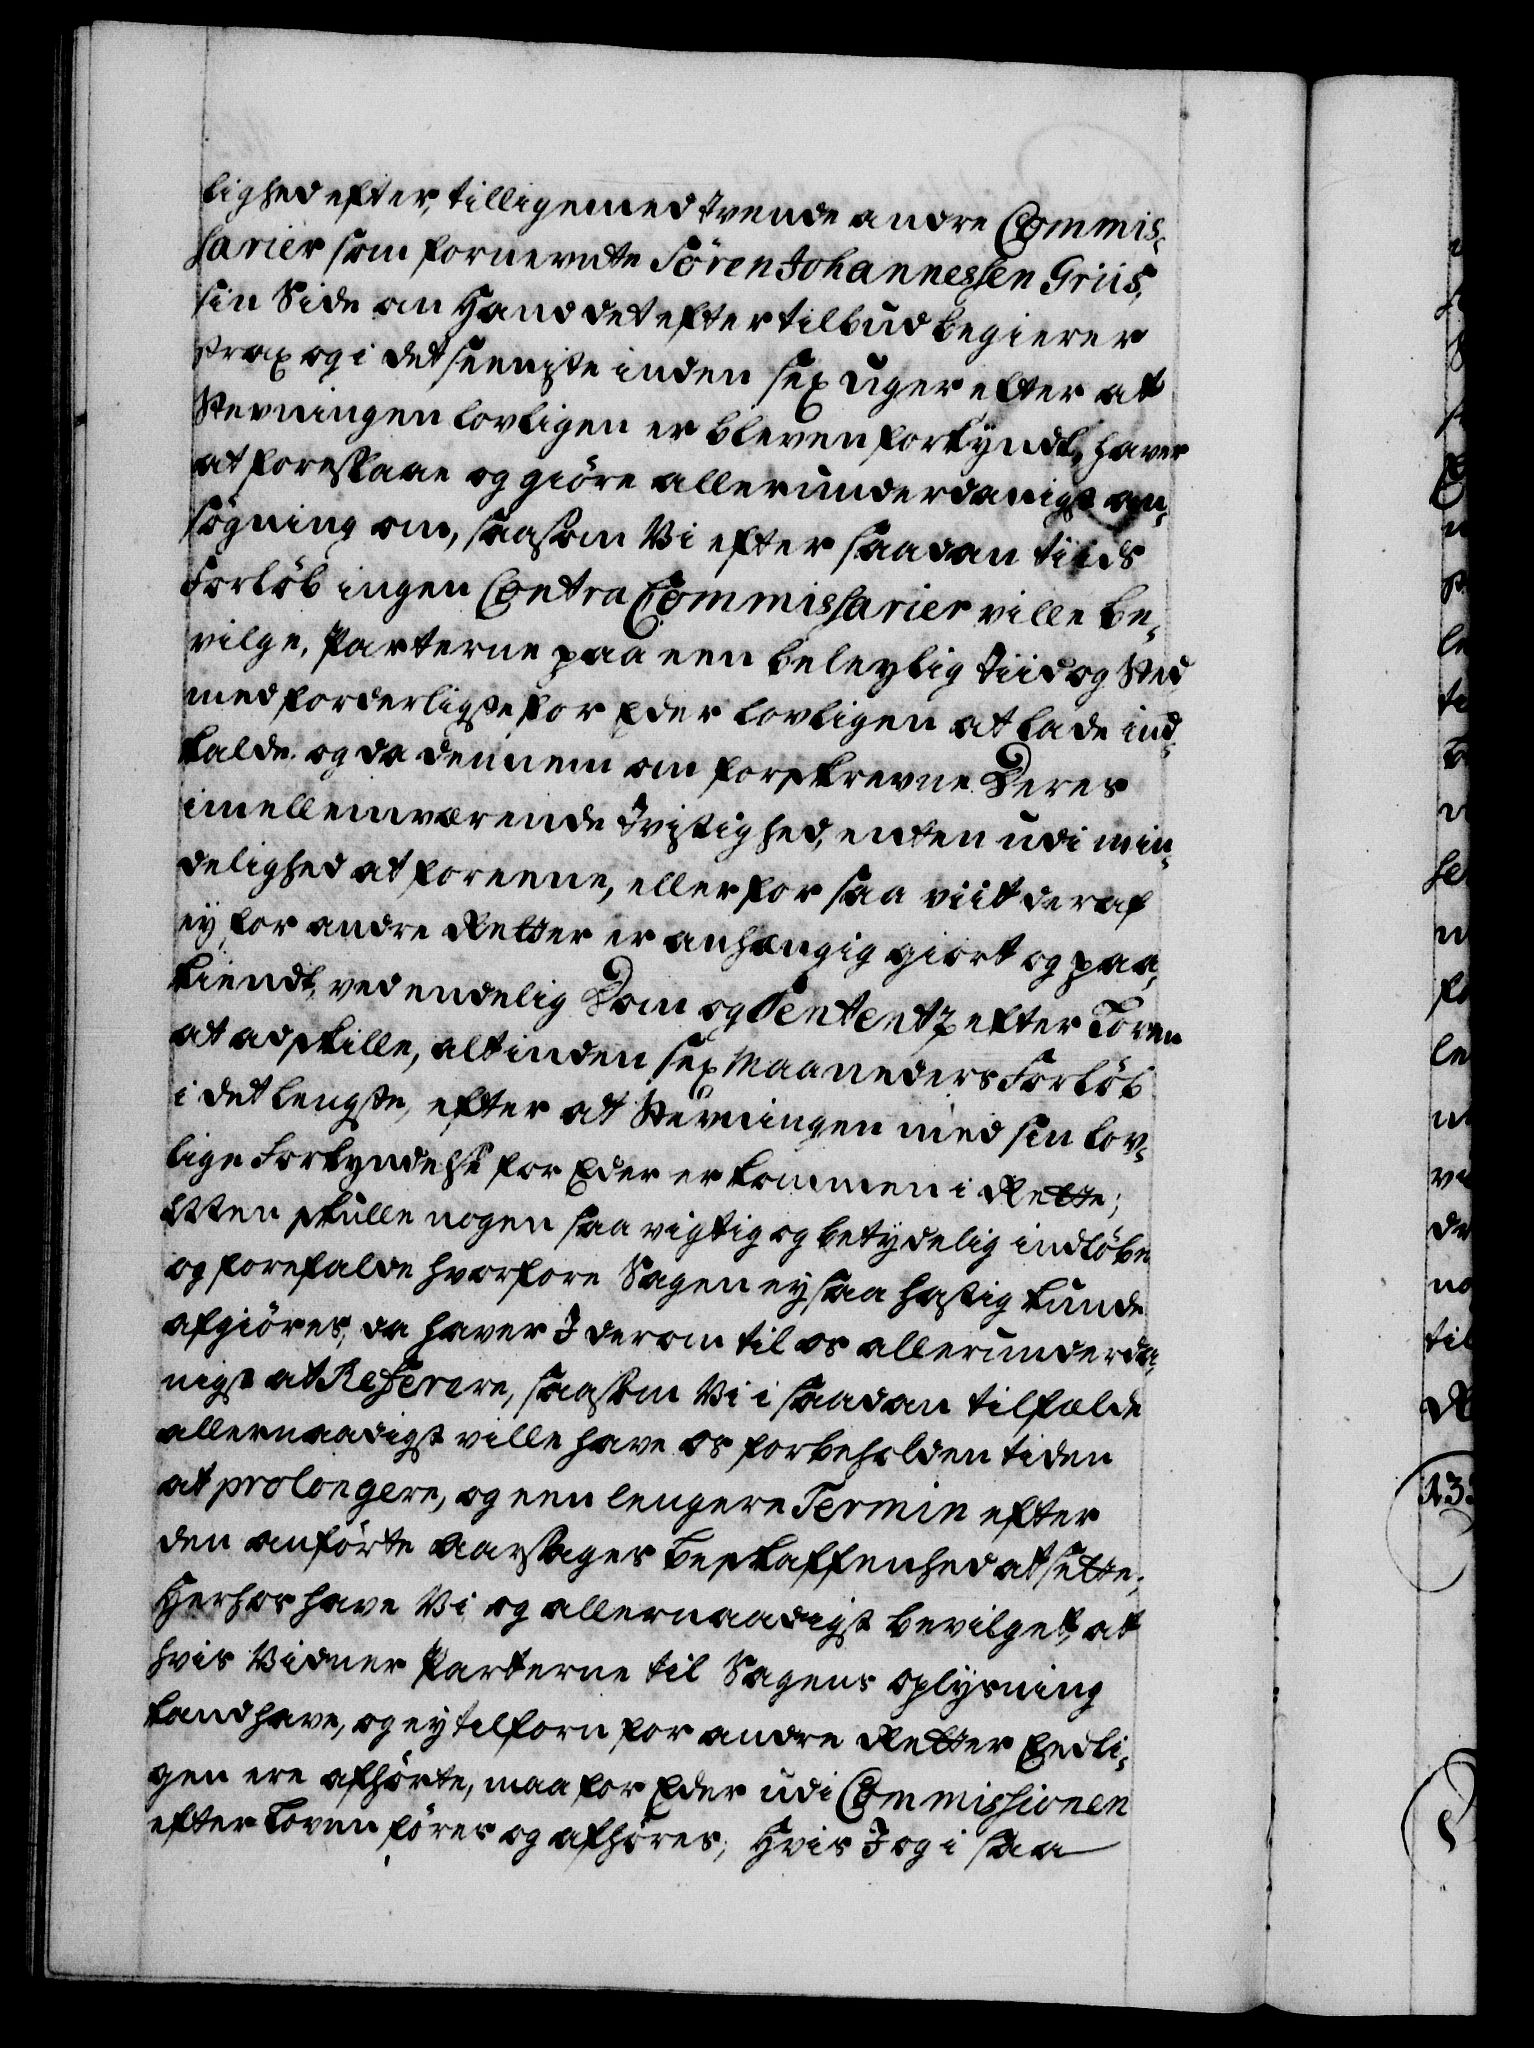 lighed efter, tilligemed tvende andre Commis-
sarier som fornevnte Sören Johannessen Griis,
sin Side om Hand det efter tilbud begierer
strax og i det seeniste inden sex uger efter at
Stevningen lovligen er bleven forkyndt, haver
at foreslaae og giöre allerunderdanigst an-
søgning om, saasom Vi efter saadan tiids
Forløb ingen Contra Commissarier ville be-
vilge, Parterne paa een beleylig Tiid og Sted
med forderligste for Eder lovligen at lade ind-
kalde. og da dennem om forskrevne Deres
imellemværende Tvistighed, enten udi min-
delighed at foreene, eller for saa viit deraf
ey for andre Retter er anhængig giort og paa-
kiendt, ved endelig Dom og Sententz efter Loven
at adskille, alt inden sex Maaneders Forløb
i det lengste, efter at Stevningen med sin lov-
lige Forkyndelse for Eder er kommen i Rette;
Men skulle nogen saa vigtig og betydelig indløbe
og forefalde hvorfore Sagen ey saa hastig kunde
afgiöres, da haver I derom til os allerunderda-
nigst at Referere, saasom Vi i saadan tilfælde
allernaadigst ville have os forbeholden tiden
at prolongere, og een lengere Termin efter
den anførte Aarsages beskaffenhed at sette.
Herhos have Vi og allernaadigst bevilget, at
hvis Vidner Parterne til Sagens oplysning
kand have, og ey tilforn for andre Retter Eedli-
gen ere afhørte, maa for Eder udi Commissionen
efter Loven føres og afhøres; Hvis I og i saa